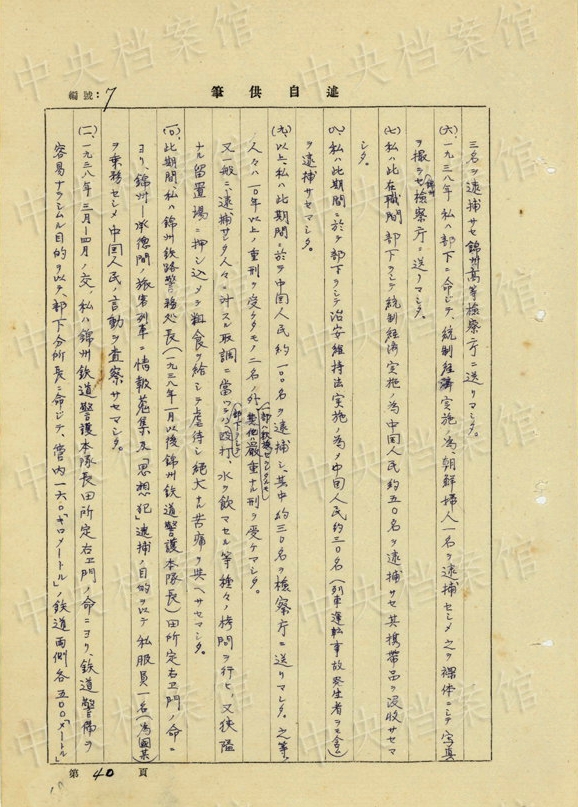 述自供筆
編號：7
三名ヲ逮捕サセ錦州高等検察庁ニ送リマシタ。
(六)、一九三八年私ハ部下ニ命ジテ、統制経済実施ノ為、朝鮮婦人一名ヲ逮捕セシメ之ヲ裸体ニシテ写真
ヲ撮ラセ錦州検察庁ニ送リマシタ。
(七)私ハ此在職間部下ヲシテ統制経済実施ノ為中国人民約五〇名ヲ逮捕サセ其携帯品ヲ没收サセマ
シタ。
(八)、私ハ此期間ニ於テ部下ヲシテ治安維持法実施ノ為メ中国人民約三〇名(列車運転事故発生者ヲモ含ム)
ヲ逮捕サセマシタ。
(九)、以上、私ハ此期間ニ於テ中国人民約一〇〇名ヲ逮捕シ、其中約三〇名ヲ検察庁ニ送リマシタ。之等ノ
人々ハ一〇年以上ノ重刑ヲ受ケタモノ二名ノ外、(一部ハ釈放セシメタルモ)其他ハ厳重ナル刑ヲ受ケマシタ。
又一般ニ、逮捕サレタ人々ニ対スル取調ニ當ツテハ部下ヲシテ殴打、水ヲ飲マセル等種々ノ拷問ヲ行ヒ、又狭隘
ナル留置場ニ押シ込メテ粗食ヲ給シテ虐待シ絶大ナル苦痛ヲ与ヘサセマシタ。
(十)、此期間、私ハ錦州鉄路警務処長(一九三八年一月以後錦州鉄道警護本隊長)田所定右ヱ門ノ命ニ
ヨリ、錦州—承德間ノ旅客列車ニ情報蒐集及「思想犯」逮捕ノ目的ヲ以テ私服員一名(馮國某)
ヲ乗務セシメ中国人民ノ言動ヲ査察サセマシタ。
(二)、一九三八年三月—四月ノ交、私ハ錦州鉄道警護本隊長田所定右ヱ門ノ命ニヨリ、鉄道警備ヲ
容易ナラシムル目的ヲ以テ、部下分所長ニ命ジテ、管内一六〇「キロメートル」ノ鉄道両側各五〇〇「メートル」
第40頁
中央档案馆